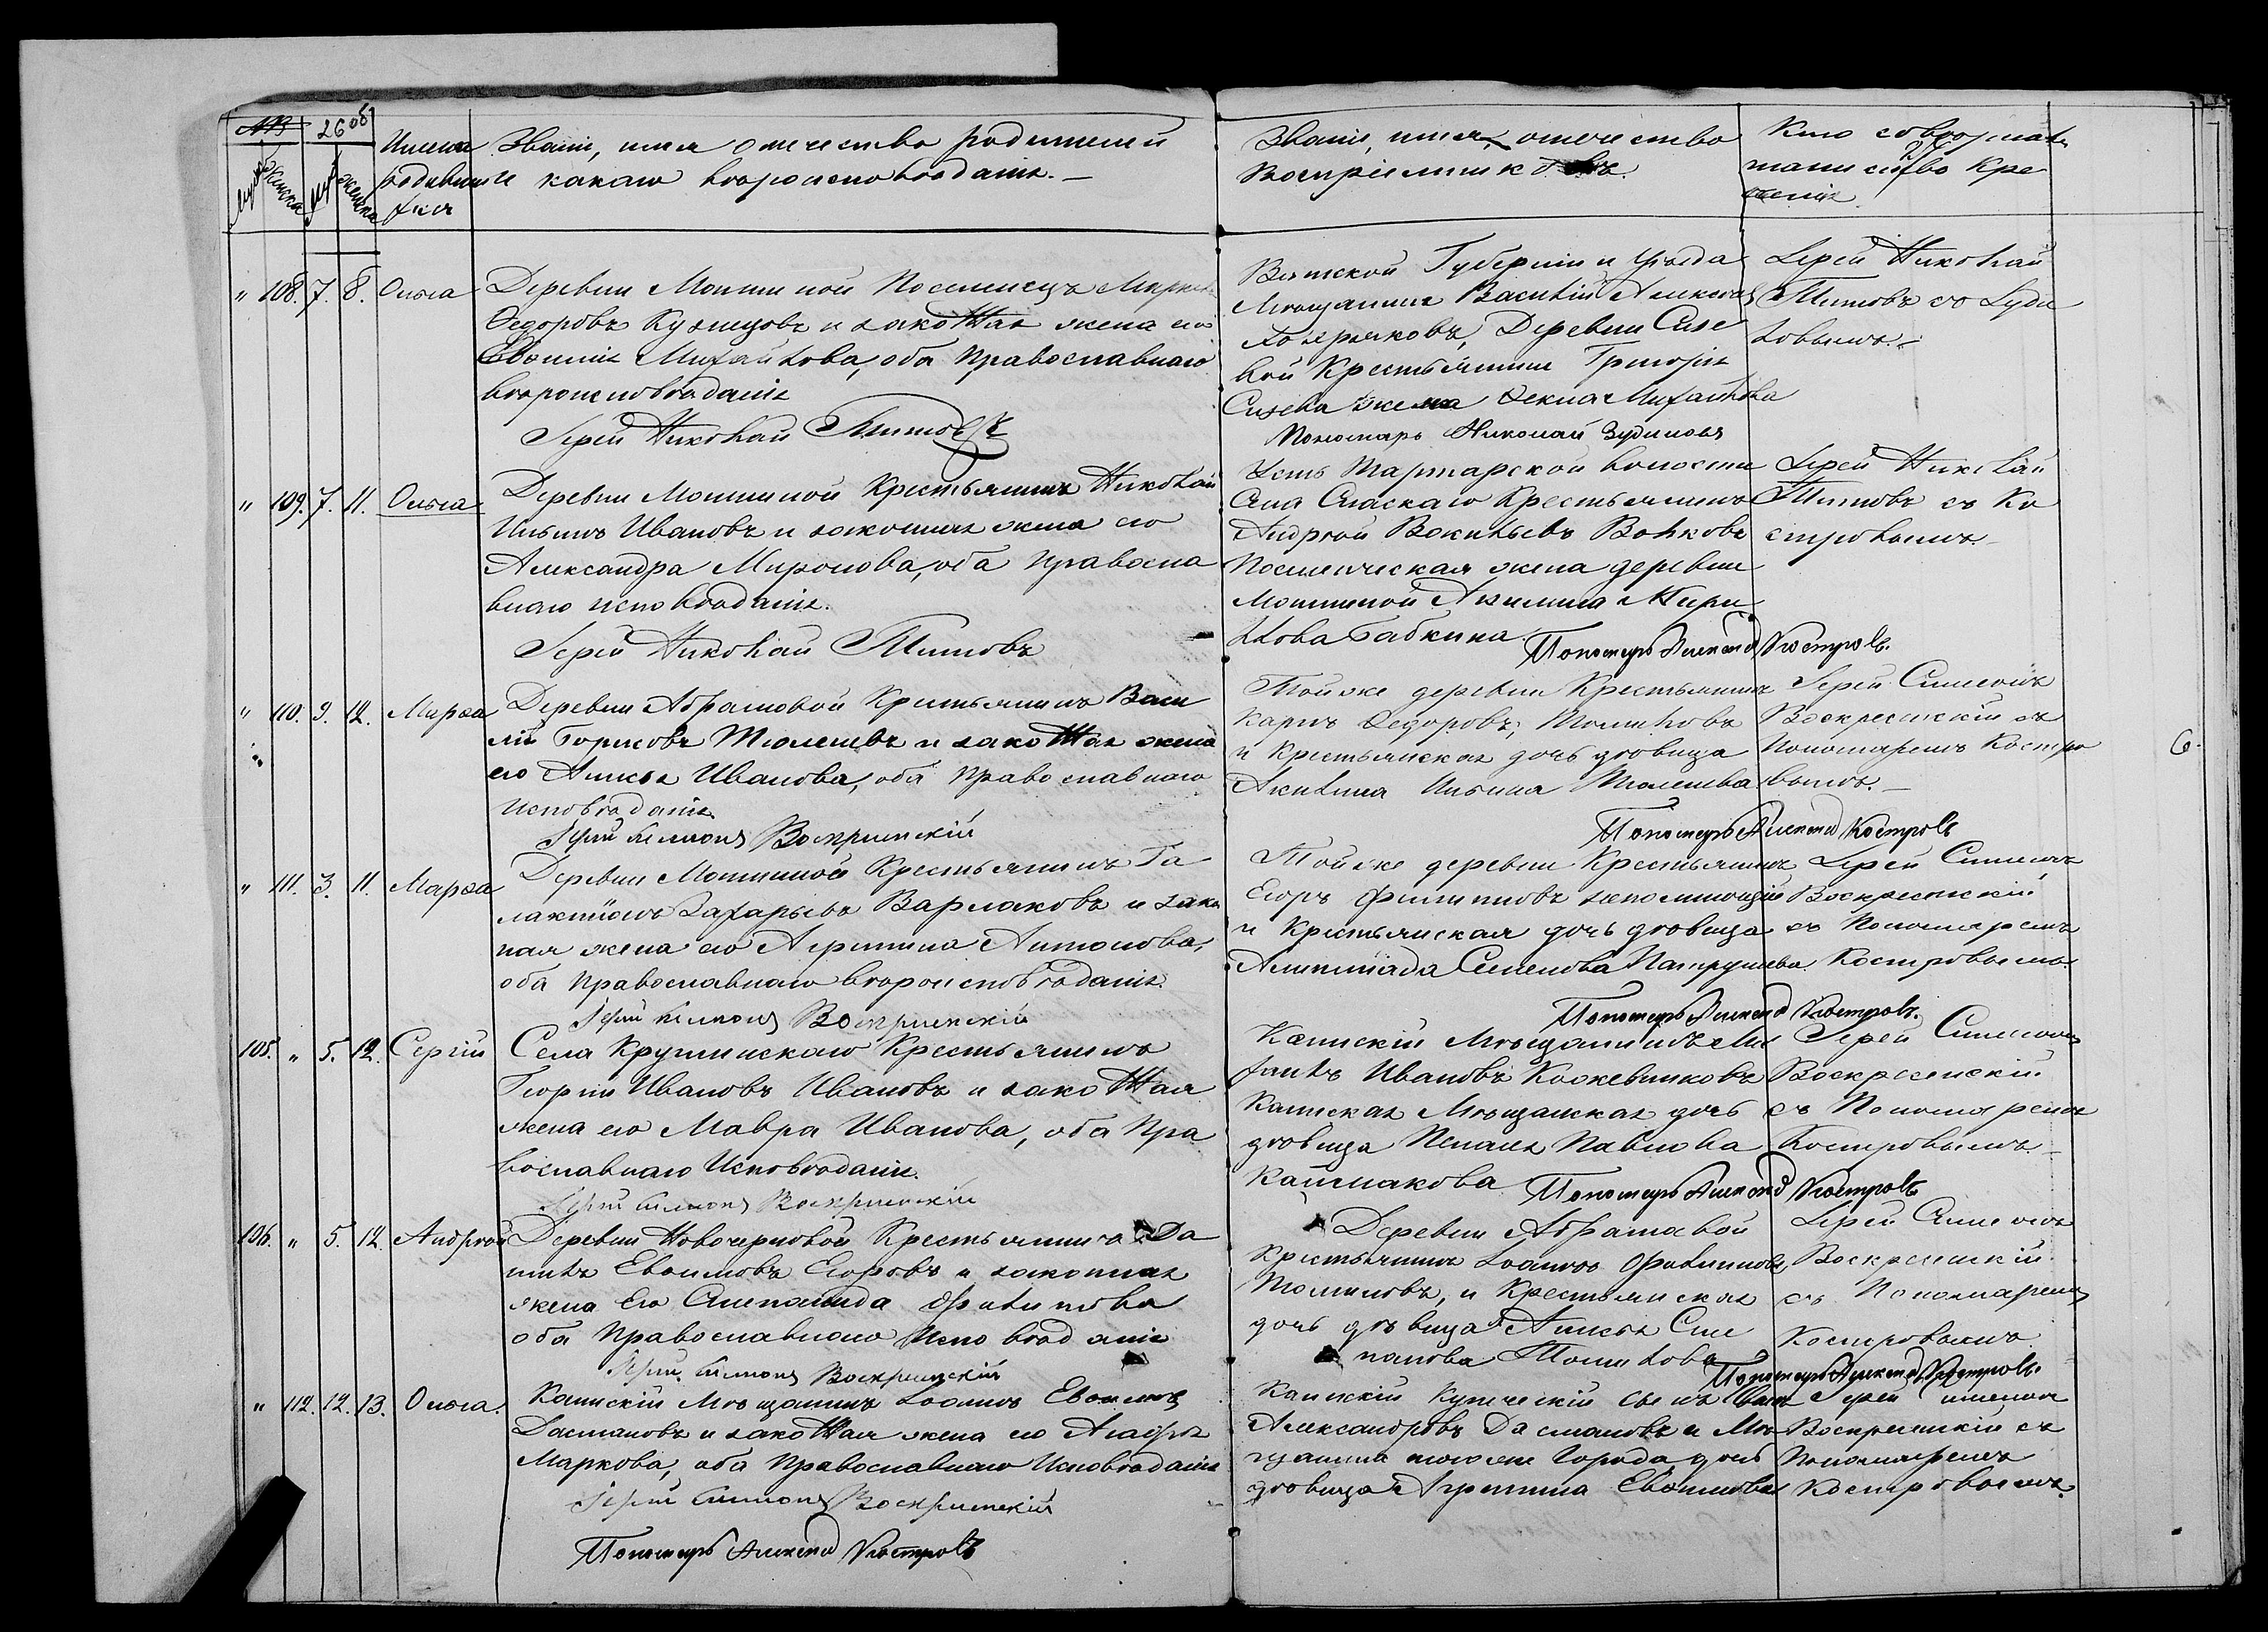 №
2608
Имена
родивши
хся
Званіе, имя отчество родителей
и какаго вѣроисповѣданія.
Званіе, имя, отечество
Воспріемниковъ.
Кто совершалъ
таинство кре
щенія
" 108. 7. 8. Ольга
Деревни Мошниной Поселенецъ
Ѳедоровъ Кузнецовъ и законная жена его
Евѳимія Михайлова, оба Православнаго
вѣроисповѣданія
Іерей Николай Титовъ
Вятской Губерніи и уѣзда
Мѣщанинъ Василій Алексѣевъ
Деревни Сизе
вой Крестьянина Григорія
Сизева жена Ѳекла Михайлова
Пономарь Николай Зудиловъ
Іерей Николай
Титовъ со Зуди
ловымъ.
" 109. 7. 11. Ольга
Деревни Мошниной Крестьянинъ Николай
Ильинъ Ивановъ и законная жена его
Александра Миронова, оба правосла
внаго исповѣданія.
Іерей Николай Титовъ
Усть Тартарской волости
Села Спаскаго Крестьянинъ
Андрей Васильевъ Волковъ
Поселенческая жена деревни
Мошниной Акилина
Бабкина
Пономарь Александ Костровъ.
Іерей Николай
Титовъ съ Ко
стровымъ
" 110. 9. 12. Марѳа
Деревни Абрамовой Крестьянинъ Васи
лій Борисовъ Тюменевъ и законная жена
его Анисья Иванова, оба православнаго
исповѣданія
Іерей Симеонъ Воскресенскій
Той же деревни Крестьянинъ
Карпъ Ѳедоровъ, Томиловъ
и Крестьянская дочь дѣвица
Акилина Ильина Тюменева
Пономарь Александ Костровъ
Іерей Симеонъ
Воскресенскій съ
Пономаремъ Костро
вымъ.
6.
" 111. 3. 11. Марѳа
Деревни Мошниной Крестьянинъ Га
лактіонъ Захарьевъ Варлаковъ и зако
ная жена его Агрипина Антонова,
оба православнаго вѣроисповѣданія.
Іерей Симеонъ Воскресенскій
Той же деревни Крестьянинъ
Егоръ Филипповъ непомнющій
и Крестьянская дочь дѣвица
Алимпіада Семенова Патрушева
Пономарь Александ Костровъ.
Іерей Симеонъ
Воскресенскій
съ Пономаремъ
Костровымъ.
105. " 5. 12. Сергій
Села Круглинскаго Крестьянинъ
Георгій Ивановъ Ивановъ и законная
жена его Мавра Иванова, оба Пра
вославнаго Исповѣданія.
Іерей Симеонъ Воскресенскій
Каинскій Мѣщанинъ Ми
хаилъ Ивановъ Кожевниковъ
Каинская Мѣщанская дочь
дѣвица Пелагія Павлова
Калмакова
Пономарь Александ Костровъ
Іерей Симеонъ
Воскресенскій
съ Пономаремъ
Костровымъ
106. " 5. 12. Андрей
Деревни Новочерновой Крестьянинъ Да
нилъ Евѳимовъ Егоровъ и законная
жена его Степанида Филипова
оба Православнаго Исповѣданія
Іерей Симеонъ Воскресенскій
Деревни Абрамовой
Крестьянинъ Іоаннъ Филипповъ
Томиловъ, и Крестьянская
дочь дѣвица Анисья Сте
панова Томилова
Пономарь Александ Костровъ.
Іерей Симеонъ
Воскресенскій
съ Пономаремъ
Костровымъ
" 112. 12. 13. Ольга.
Каинскій Мѣщанинъ Іоаннъ Евѳимовъ
Дастановъ и законная жена его Агафья
Маркова, оба Православнаго Исповѣданія
Іерей Симеонъ Воскресенскій
Пономарь Александ Костровъ
Каинскій Купеческій сынъ
Александровъ Дастановъ и Мѣ
щанина того же Города дочь
дѣвица Агрипина Евѳимова
Іерей Симеонъ
Воскресенскій съ
Пономаремъ
Костровымъ.